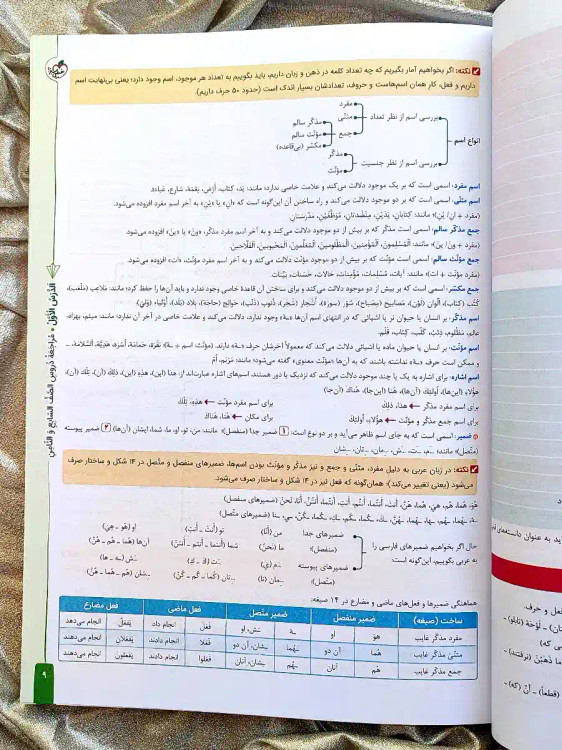 نکته: اگر بخواهیم آمار بگیریم که چه تعداد کلمه در ذهن و زبان داریم، باید بگوییم به تعداد هر موجود، اسم وجود دارد؛ یعنی بی‌نهایت اسم
داریم و فعل، کار همان اسم‌هاست و حروف، تعدادشان بسیار اندک است (حدود ۵۰ حرف داریم).
انواع اسم
بررسی اسم از نظر تعداد
مفرد
مثنّی
جمع
مذکّر سالم
مؤنّث سالم
مکسّر (بی‌قاعده)
بررسی اسم از نظر جنسیت
مذکّر
مؤنّث
اسم مفرد: اسمی است که بر یک موجود دلالت می‌کند و علامت خاصی ندارد؛ مانند: یَد، کتاب، أرْض، بَقَعة، شارِع، عَباءَة.
اسم مثنّی: اسمی است که بر دو موجود دلالت می‌کند و راه ساختن آن این‌گونه است که «انِ» یا «یْنِ» به آخر اسم مفرد افزوده می‌شود.
(مفرد + انِ/ یْنِ) مانند: کتابانِ، یَدَیْنِ،
جمع مذکّر سالم: اسمی است مذکّر که بر بیش از دو موجود دلالت می‌کند و به آخر اسم مفرد مذکّر، «ونَ» یا «ینَ» افزوده می‌شود.
(مفرد + ونَ/ ینَ) مانند: المُسْلِمونَ، المُؤمِنینَ، المَظلومینَ، المُعَلِّمونَ، المَحبوبینَ، الفَلّاحینَ.
جمع مؤنّث سالم: اسمی است مؤنّث که بر بیش از دو موجود مؤنّث دلالت می‌کند و به آخر اسم مفرد مؤنّث، «ات» افزوده می‌شود.
(مفرد مؤنّث + ات) مانند: آیات، مُسْلِمات، مُؤمِنات، حالات، حَسَنات، بَیِّنات.
جمع مکسّر: اسمی است که بر بیش از دو موجود دلالت می‌کند و برای ساختن آن قاعدهٔ خاصی وجود ندارد و باید آن‌ها را حفظ کرد؛ مانند: مَلاعِب (مَلعَب)،
کُتُب (کِتاب)، ألوان (لَوْن)، مَصابیح (مِصباح)، سُوَر (سورَة)، أشْجار (شَجَر)، ذُنوب (ذَنْب)، حَوائِج (حاجَة)، بِلاد (بَلَد)، أولِیاء (وَلیّ)
اسم مذکّر: بر انسان یا حیوان نر یا اشیائی که در انتهای اسم آن‌ها «ـة» وجود ندارد، دلالت می‌کند و علامت خاصی در آخر آن ندارد؛ مانند: میثم، بهزاد،
عالِم، مَظلوم، ذِئب، کَلْب، کِتاب، قَلَم.
اسم مؤنّث: بر انسان یا حیوان ماده یا اشیائی دلالت می‌کند که معمولاً آخرشان حرف «ـة» دارند. (مؤنّث: اسم + ـة)
و ممکن است حرف «ـة» نداشته باشند که به آن‌ها «مؤنّث معنوی» گفته می‌شود؛ مانند: مَریَم، أُمّ
اسم اشاره: برای اشاره به یک یا چند موجود دلالت می‌کند که نزدیک یا دور هستند. اسم‌های اشاره عبارت‌اند از: هذا (این)، هذِهِ (این)، ذلِكَ (آن)، تِلْكَ (آن)،
هؤُلاءِ (این‌ها)، أُولئِكَ (آن‌ها)، هُنا (این‌جا)، هُناكَ (آن‌جا)
برای اسم مفرد مذکّر ← هذا، ذلِكَ
برای اسم مفرد مؤنّث ← هذِهِ، تِلْكَ
برای اسم جمع مذکّر و مؤنّث ← هؤُلاءِ، أُولئِكَ
برای مکان ← هُنا، هُناكَ
ضمیر: اسمی است که به جای اسم ظاهر می‌آید و بر دو نوع است: ۱ ضمیر جدا (منفصل)؛ مانند: من، تو، او، ما، شما، ایشان (آن‌ها) ۲ ضمیر پیوسته
(متّصل)؛ مانند: ـَـ م، ـَـ ت، ـَـ ش، ـِـ مان، ـِـ تان، ـِـ شان
نکته: در زبان عربی به دلیل مفرد، مثنّی و جمع و نیز مذکّر و مؤنّث بودن اسم‌ها، ضمیرهای منفصل و متّصل در ۱۴ شکل و ساختار صرف
می‌شود (یعنی تغییر می‌کند)؛ همان‌گونه که فعل نیز در ۱۴ شکل و ساختار صرف می‌شود.
هُوَ، هُما، هُم، هِيَ، هُما، هُنَّ، أنتَ، أنتُما، أنتُم، أنتِ، أنتُما، أنتُنَّ، أنَا، نَحنُ (ضمیرهای منفصل)
ـهُ، ـهُما، ـهُم، ـها، ـهُما، ـهُنَّ، ـكَ، ـكُما، ـكُم، ـكِ، ـكُما، ـكُنَّ، ـي، ـنا (ضمیرهای متّصل)
حال اگر بخواهیم ضمیرهای فارسی را
به عربی بگوییم، این‌گونه است:
ضمیرهای جدا
(منفصل):
من (أنَا)
تو (أنتَ ـ أنتِ)
او (هُوَ ـ هِيَ)
ما (نَحنُ)
شما (أنتُما ـ أنتُم ـ أنتُنَّ)
آن‌ها (هُما ـ هُم ـ هُنَّ)
ضمیرهای پیوسته
(متّصل):
ـَـ م (ي)
ـَـ ت (كَ ـ كِ)
ـَـ ش (ـهُ ـ ها)
ـِـ مان (نا)
ـِـ تان (كُما ـ كُم ـ كُنَّ)
ـِـ شان (هُما ـ هُم ـ هُنَّ)
هماهنگی ضمیرها و فعل‌های ماضی و مضارع در ۱۴ صیغه:
ساخت (صیغه) ضمیر منفصل ضمیر متّصل فعل ماضی فعل مضارع
مفرد مذکّر غایب هُوَ او ـهُ ـَـ ش، او فَعَلَ انجام داد یَفعَلُ انجام می‌دهد
مثنّیٰ مذکّر غایب هُما آن دو ـهُما ـِـ شان، آن دو فَعَلا انجام دادند یَفعَلانِ انجام می‌دهند
جمع مذکّر غایب هُم آنان ـهُم ـِـ شان، آنان فَعَلوا انجام دادند یَفعَلونَ انجام می‌دهند
الدَّرْسُ الْأَوَّلُ • مُراجَعَةُ دُروسِ الصَّفِّ السّابِعِ وَ الثّامِنِ
۹